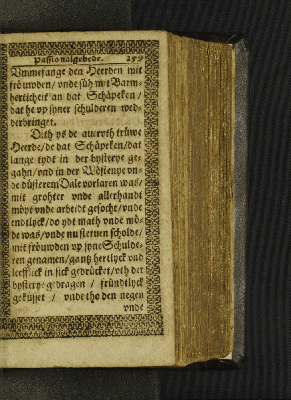 Passionalgebede. 259
Vmmefange den Heerden mit
fröuwden / vnde süh mit Barm-
herticheit an dat Schäpeken /
dat he vp syner schulderen wed-
derbringet.
Dith ys de aueruth trüwe
Heerde / de dat Schäpeken / dat
lange tydt in der bysterye ge-
gahn / vnd in der Wöstenye vn-
de düsterem Dale vorlaren was /
mit grohter vnde allerhande
möye vnde arbeidt gesocht / vnde
endtlyck / do ydt math vnde mö-
de was / vnde nu steruen scholde /
mit fröuwden vp syne Schulde-
ren genamen / gantz hertlyck vnd
leefflick in sick gedrücket / vth der
bysterye gedragen / fründtlyck
geküsset / vnde tho den negen
vnde